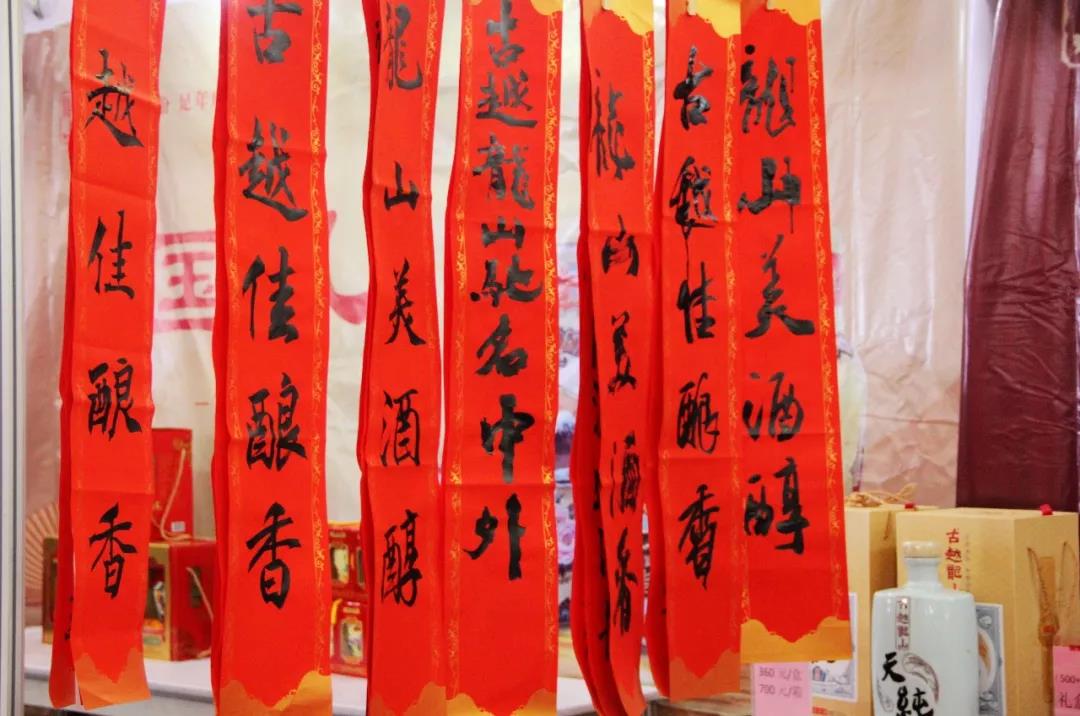 越佳酿香
古越佳酿香
龍山美酒醇
古越龍山馳名中外
龍山美酒香
古越佳酿香
龍山美酒醇
古越龍山
古越龍山
天純
360元/盒
700元/箱